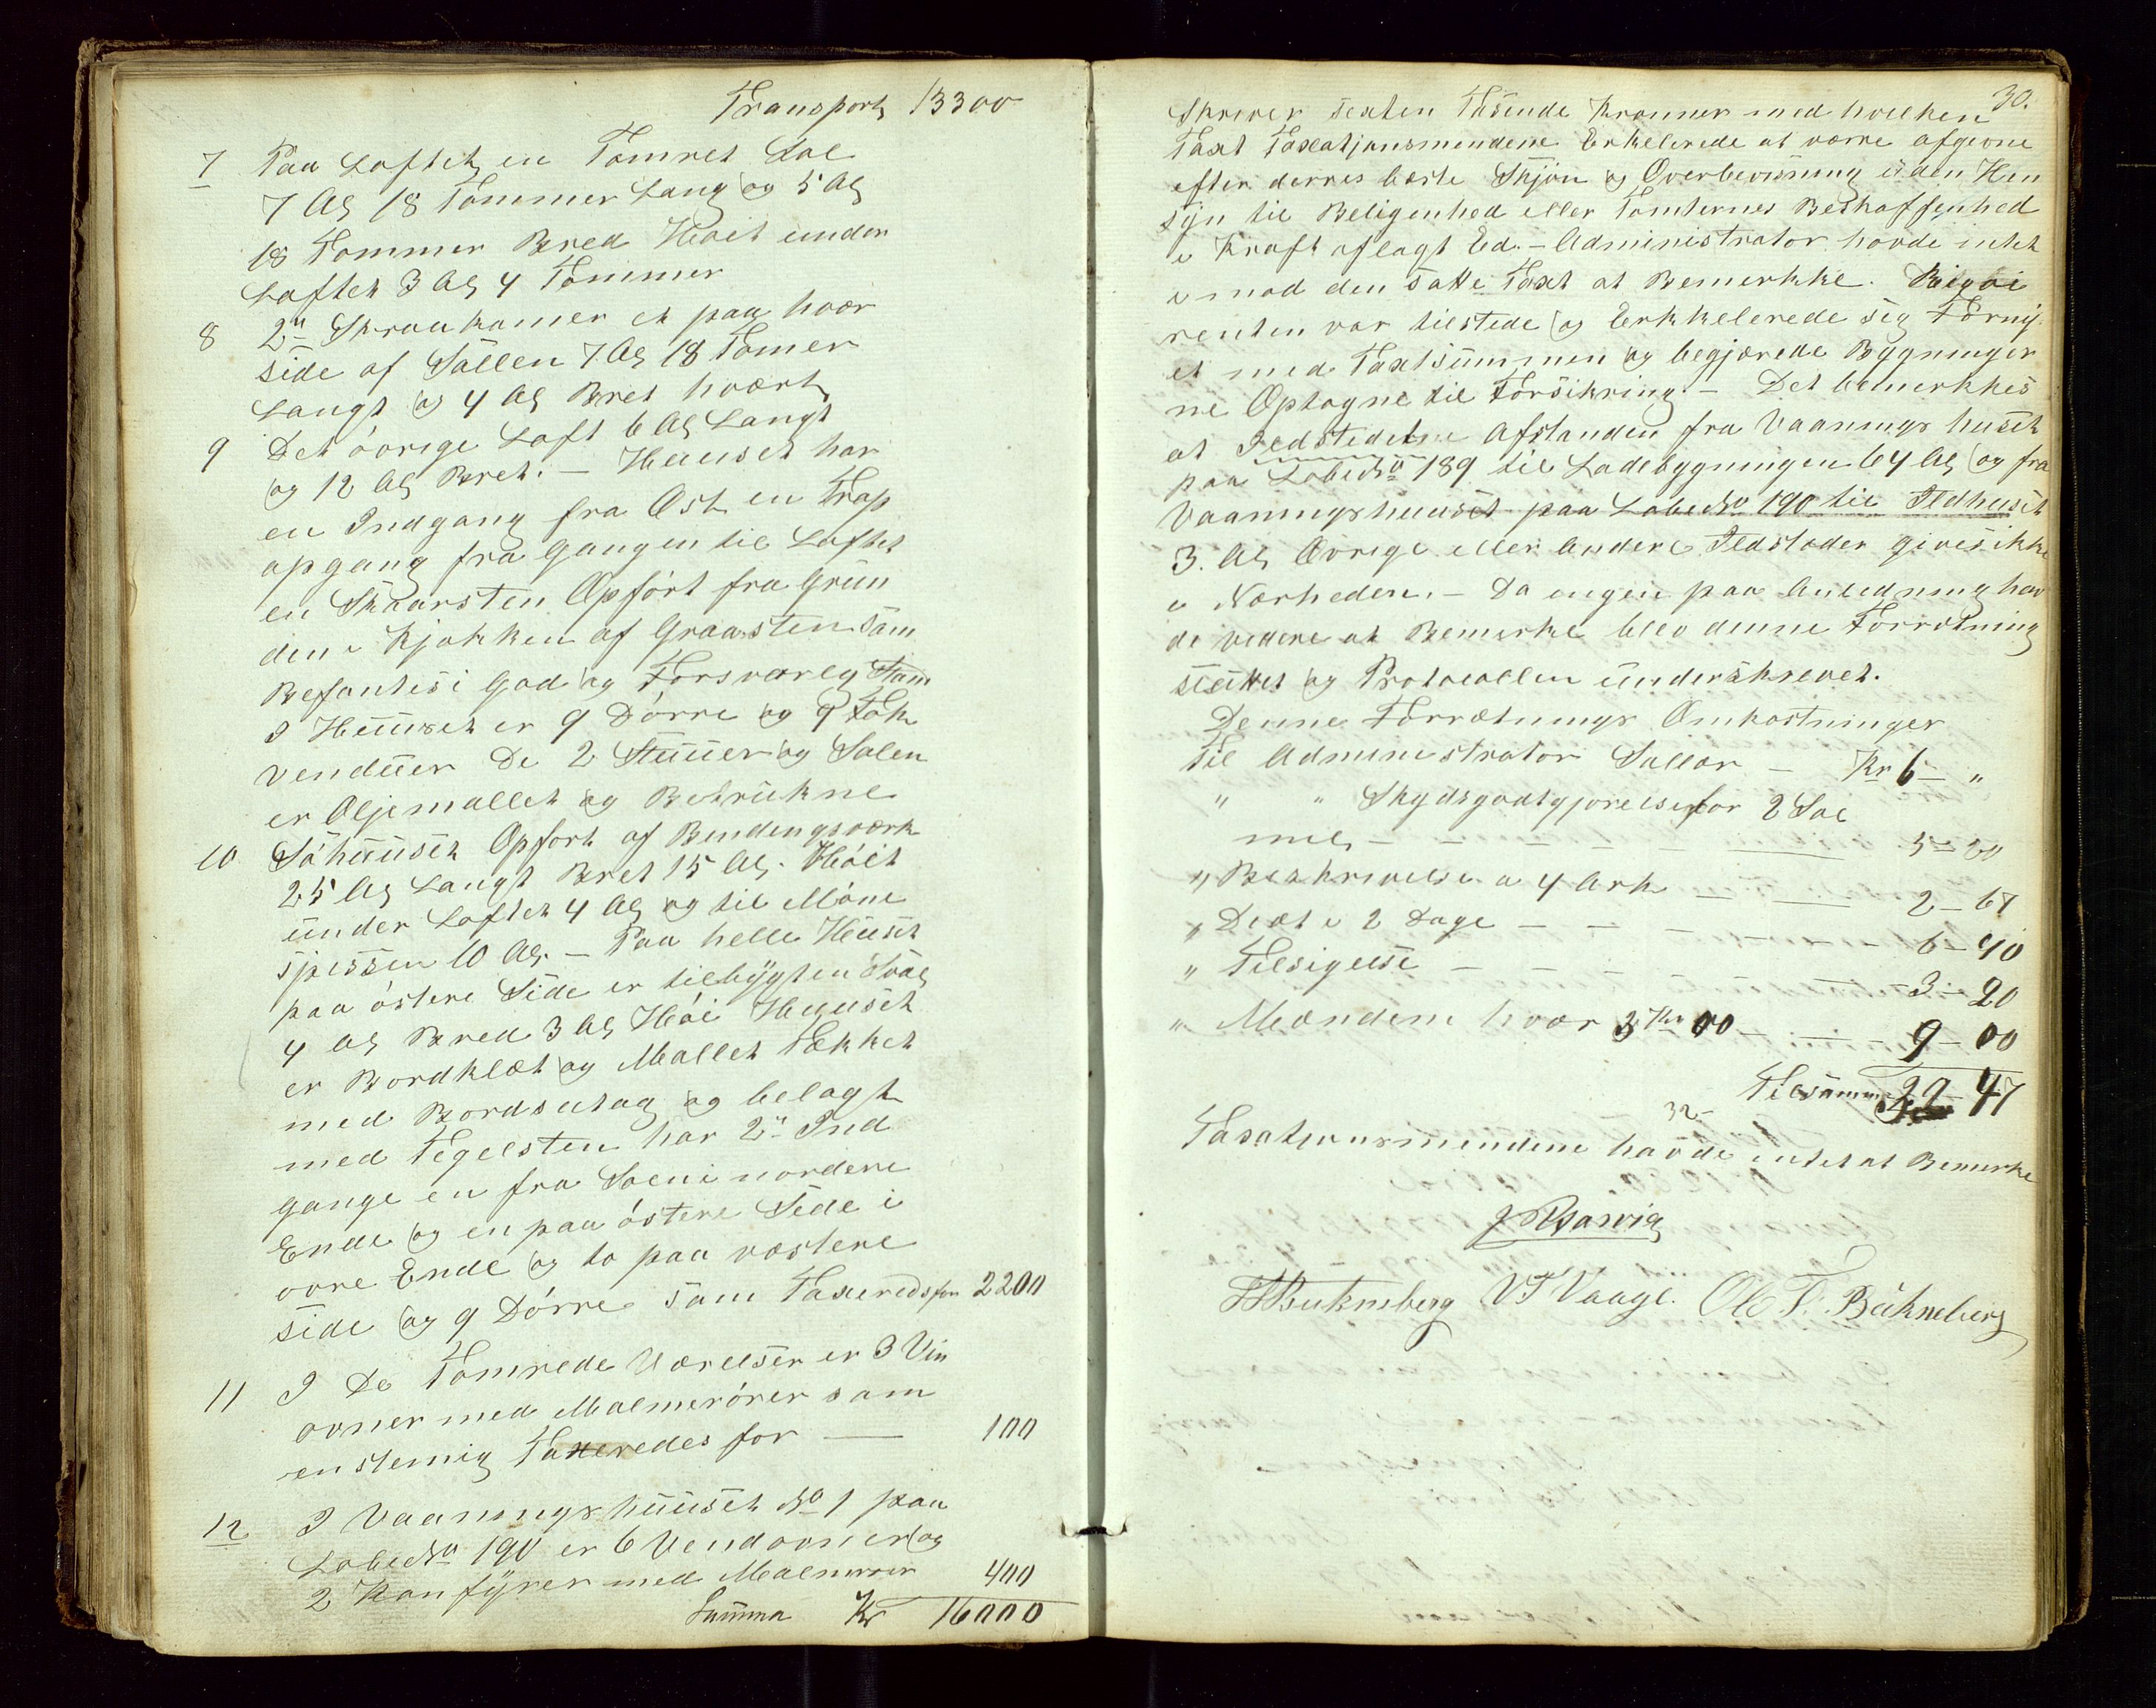 Transport 13300
7 Paa Loftet en Tømret Sal
7 Al 18 Tommer Lang og 5 Al
18 Tommer Bred Høit under
Loftet 3 Al 4 Tommer
8 2" Skraakamer et paa hvær
side af Sallen 7 Al 18 Tomer
Langt og 4 Al Bret hvært
9 Det øvrige Loft 6 Al Langt
og 12 Al Bret. – Huuset har
en Indgang fra Øst en Trap
opgang fra Gangen til Loftet
en Skaarsten Opført fra Grün
den i Kjøkken af Graasten som
Befantes i God og Forsvarlig Stan
I Huuset er 9 Dørre og 9 Fak
venduer De 2 Stuuer og Salen
er Oljemallet og Betrükne
10 Søhuuset Opført af Bindingsværk
25 Al Langt Bret 15 Al. Høit
under Loftet 4 Al og til Møne
spessen 10 Al. – Paa helle Huuset
paa østere Side er tilbygt en Sval
4 Al Bred 3 Al Høi Huuset
er Bordklæt og Mallet Tækket
med Bordsutag og belagt
med Tegelsten har 2" Ind
gange en fra Soen i nordere
Ende og en paa østere Side i
øvre Ende og to paa væstere
side og 9 Dørre som Taxeredes for 2200
11 I De Tømrede Værelser er 3 Vin
ovner med Malmerører som
enstemig Taxeredes for — 100
12 I Vaaningshuuset No 1 paa
Løbe No 190 er 6 Vendovner og
2 Konfyrer med Malmrør 400
Summa Kr 16000
30.
Skriver sexten Tusende Kronner med hvelken
Taxt Taxatjonsmendene Erkelerede at værre afgivne
efter derres beste Skjøn og Overbevisning uden Hen
syn til Beligenhed eller Tomternes Beskaffenhed
i Kraft aflagt Ed. – Administrator havde intet
imod den satte Taxt at Bemerkke. Rigvi
renten var tilstede og Erkkelerede sig Fornøj
et med Taxtsummen og begjærede Bygninger
ne Optagne til Forsikring. – Det bemerkkes
at Ildstedetne Afstanden fra Vaanings huset
paa Løbe No 189 til Ladebygningen 64 Al og fra
Vaaningshuuset paa Løbe No 190 til Ildhuset
3. Al Øvrige eller Andere Ildstæder gives ikke
i Nærheden. – Da engen paa Anledning hav
de vedere at Bemerke blev denne Forretning
sluttet og Protocollen underskrevet.
Denne Forrætnings Omkostninger
Til Administrator Sallar – Kr 6 – "
" " Skydsgodtgjørelse for 2 Søe
mil – – – – – 5 – 20
" Bezkrivelse a 4 Ark — 2 – 67
" Diæt i 2 Dage – – – 6 – 40
" Tilsigelse – – – – – 3 – 20
" Mændene hvær 3 Kr 00 – – – 9 – 00
Tilsammen 47
32 –
Taxationsmendene havde intet at Bemerke
J Rsarvig
V T Vaage. Ole T. Bükneberg